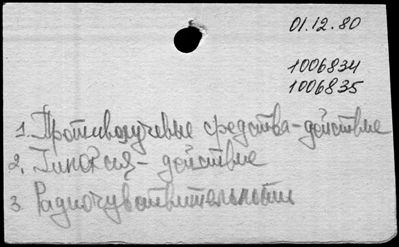 01.12.80
1006834
1006835
1. Противолучевые средства-действие
2. Гипоксия - действие
3. Радиочувствительность